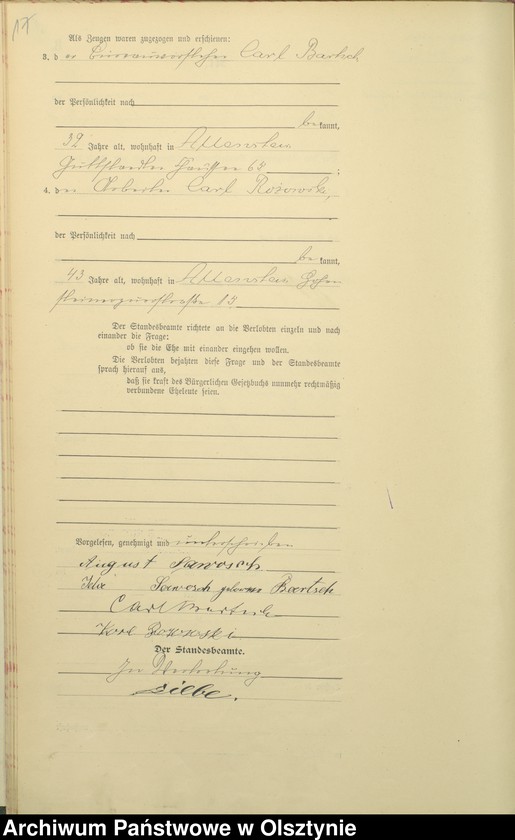 Als Zeugen waren zugezogen und erschienen:
3. der Carl Bartsch
der Persönlichkeit nach
bekannt,
39 Jahre alt, wohnhaft in Allenstein
Guttstädter Straße
;
4. der Arbeiter Carl
der Persönlichkeit nach
bekannt,
43 Jahre alt, wohnhaft in Allenstein Hohen
steinerquerstraße 13
Der Standesbeamte richtete an die Verlobten einzeln und nach
einander die Frage:
ob sie die Ehe mit einander eingehen wollen.
Die Verlobten bejahten diese Frage und der Standesbeamte
sprach hierauf aus,
daß sie kraft des Bürgerlichen Gesetzbuchs nunmehr rechtmäßig
verbundene Eheleute seien.
Vorgelesen, genehmigt und unterschrieben
August Sawosch
Ida Sawosch geborene Bartsch
Carl Bartsch
Karl
Der Standesbeamte.
In Vertretung
Archiwum Państwowe w Olsztynie